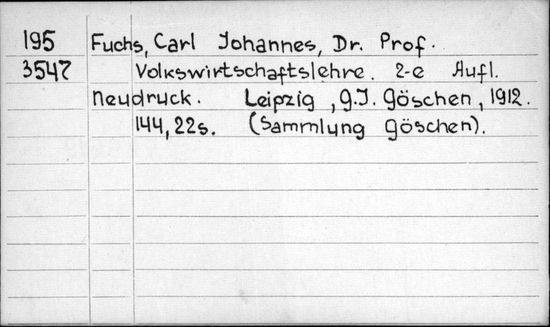 195 Fuchs, Carl Johannes, Dr. Prof.
3547 Volkswirtschaftslehre. 2-e Aufl.
Neudruck. Leipzig, G.J. Göschen, 1912.
144, 22s. (Sammlung Göschen).